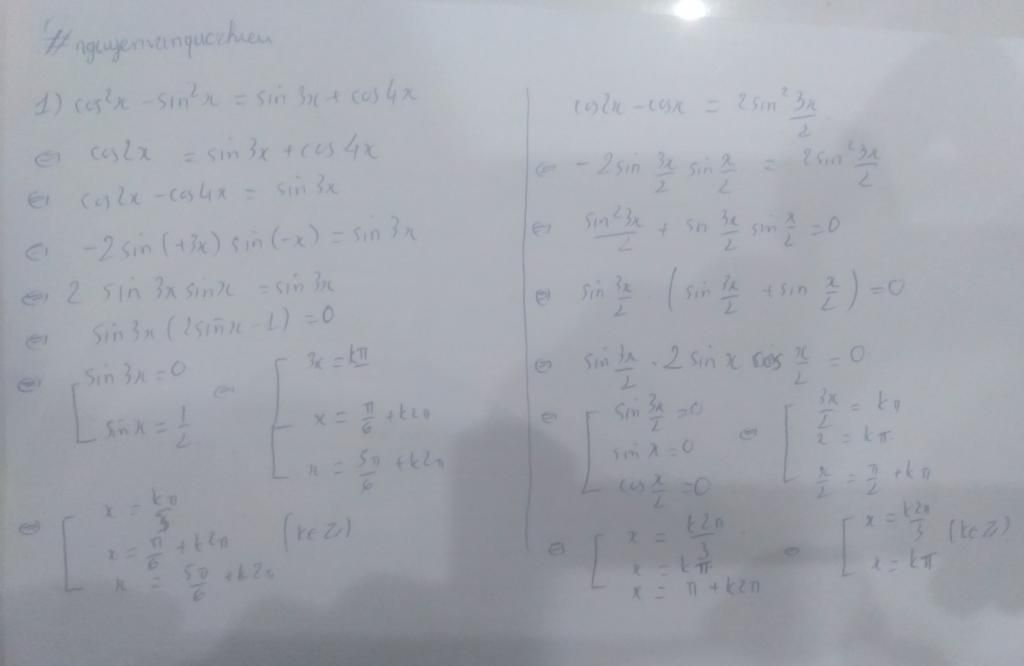 #nguyenvanquocchieu
1) cos²x - sin²x = sin 3x + cos 4x
⇔ cos2x = sin 3x + cos 4x
⇔ cos2x - cos4x = sin 3x
⇔ -2 sin (+3x) sin (-x) = sin 3x
⇔ 2 sin 3x sinx = sin 3x
⇔ sin 3x (2sinx - 1) = 0
⇔ [ sin 3x = 0 ⇔ [ 3x = kπ
sin x = 1/2 x = π/6 + k2π
x = 5π/6 + k2π
⇔ [ x = kπ/3
x = π/6 + k2π (k∈Z)
x = 5π/6 + k2π
cos2x - cosx = 2sin² 3x/2
⇔ -2sin 3x/2 sin x/2 = 2sin² 3x/2
⇔ sin² 3x/2 + sin 3x/2 sin x/2 = 0
⇔ sin 3x/2 . (sin 3x/2 + sin x/2) = 0
⇔ sin 3x/2 . 2 sin x cos x/2 = 0
⇔ [ sin 3x/2 = 0 ⇔ [ 3x/2 = kπ
sin x = 0 x = kπ
cos x/2 = 0 x/2 = π/2 + kπ
⇔ [ x = k2π/3 ⇔ [ x = k2π/3 (k∈Z)
x = kπ x = kπ
x = π + k2π